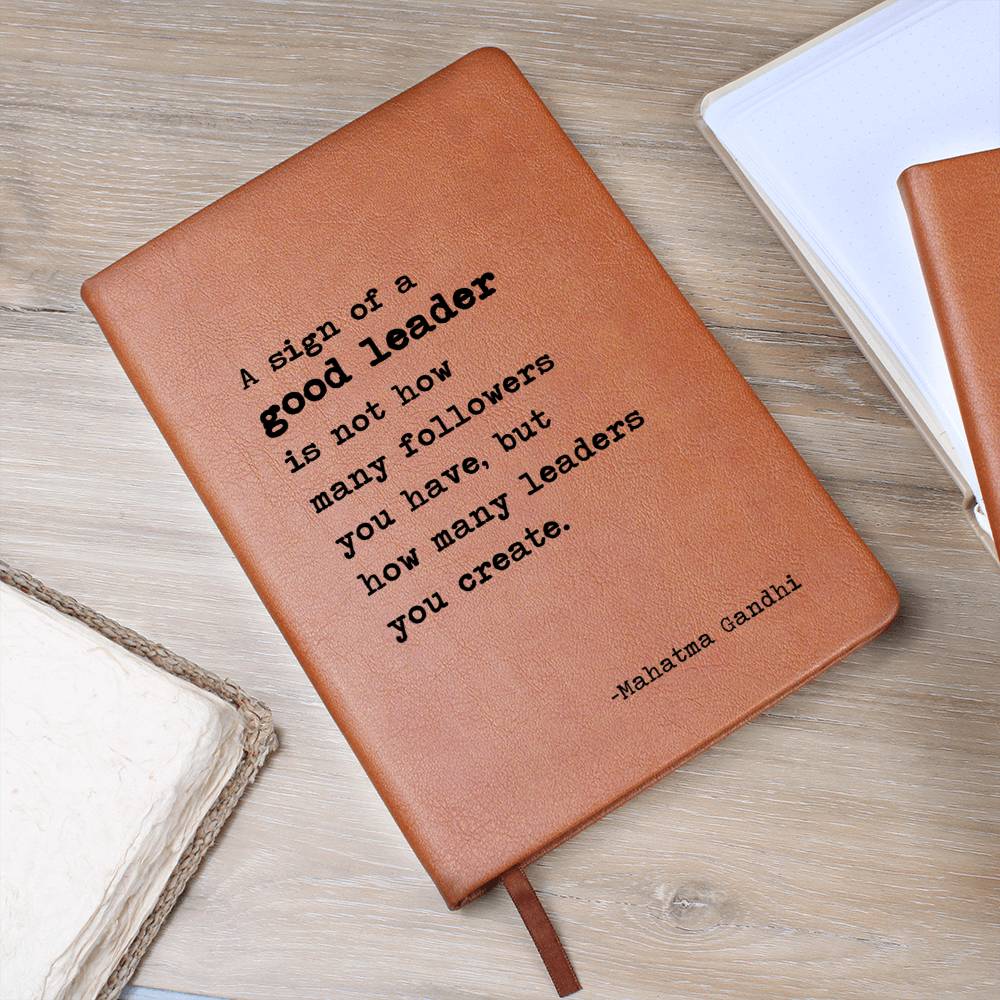 A sign of a
good leader
is not how
many followers
you have, but
how many leaders
you create.
-Mahatma Gandhi